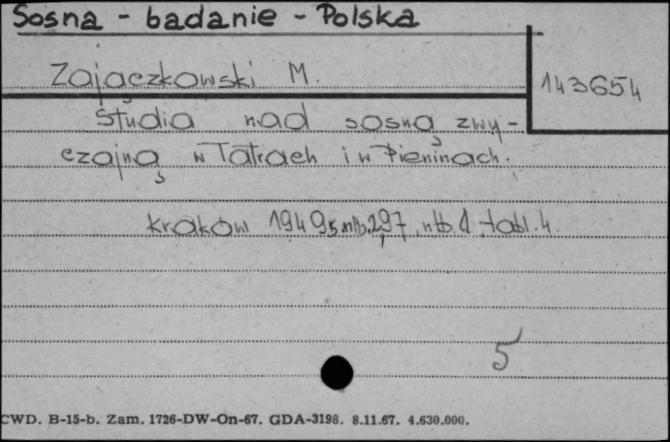 Sosna - badanie - Polska
Zajączkowski M.
143654
Studia nad sosną zwy-
czajną w Tatrach i w Pieninach.
Kraków 1949 s. nlb. 297, nlb 1 tabl. 4
5
CWD. B-15-b. Zam. 1726-DW-On-67. GDA-3198. 8.11.67. 4.630.000.